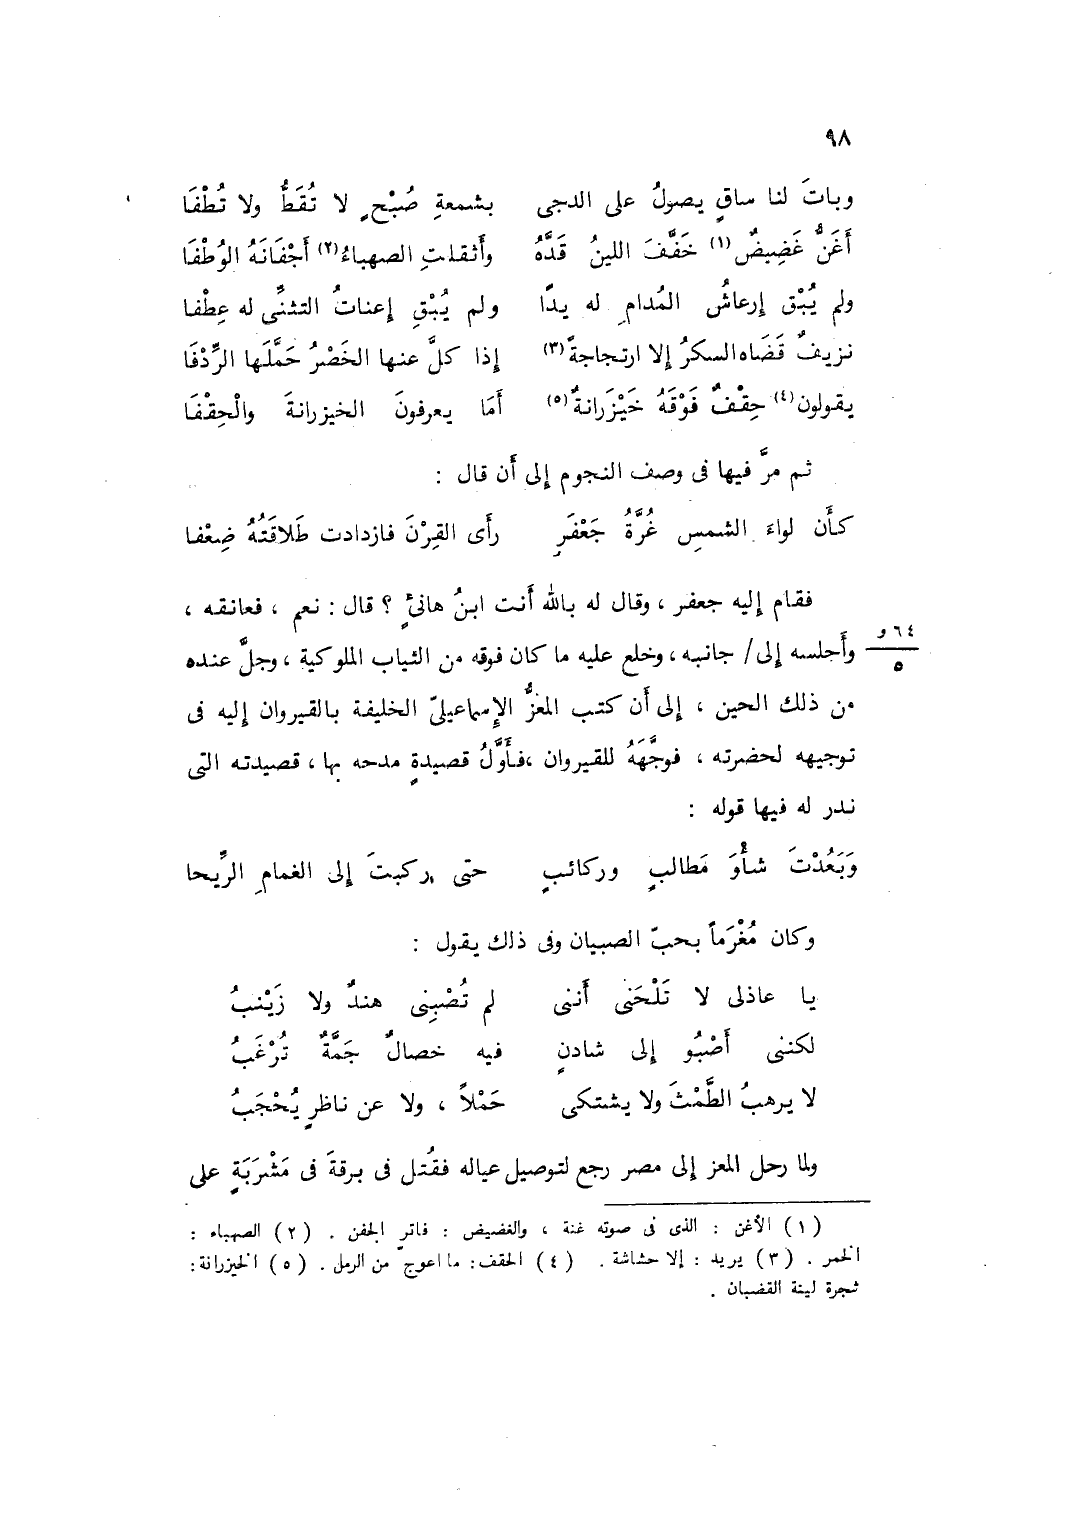 ٩٨
وباتَ لنا ساقٍ يصولُ على الدجى بشمعةِ صُبْحٍ لا تُقَطُّ ولا تُطْفَا
أَغَنُّ غَضِيضٌ (١) خَفَّفَ اللينُ قَدَّهُ وأَثقلتِ الصهباءُ (٢) أَجْفَانَهُ الوُطْفَا
ولم يُبْقِ إرعاشُ المُدامِ له يدًا ولم يُبْقِ إعناتُ التثنِّى له عِطْفا
نزيفٌ قَضَاه السكرُ إلا ارتجاجةً (٣) إذا كلَّ عنها الخَصْرُ حَمَّلَها الرِّدْفَا
يقولون (٤) حِقْفٌ فَوْقَهُ خَيْزَرانةٌ (٥) أَمَا يعرفونَ الخيزرانةَ والْحِقْفَا
ثم مرَّ فيها فى وصف النجوم إلى أَن قال :
كأَن لواءَ الشمسِ غُرَّةُ جَعْفَرٍ رأَى القِرْنَ فازدادت طَلاقَتُهُ ضِعْفا
فقام إليه جعفر ، وقال له بالله أَنت ابنُ هانئٍ ؟ قال : نعم ، فعانقه ،
وأَجلسه إلى / جانبه ، وخلع عليه ما كان فوقه من الثياب الملوكية ، وجلَّ عنده
٦٤ و
٥
من ذلك الحين ، إلى أَن كتب المعزُّ الإسماعيلىّ الخليفة بالقيروان إليه فى
توجيهه لحضرته ، فوجَّهَهُ للقيروان ، فأَوَّلُ قصيدةٍ مدحه بها ، قصيدته التى
ندر له فيها قوله :
وَبَعُدْتَ شأْوَ مَطالبٍ وركائبٍ حتى ركبتَ إلى الغمامِ الرِّيحا
وكان مُغْرَماً بحبّ الصبيان وفى ذلك يقول :
يا عاذلى لا تَلْحَنى أَننى لم تُصْبِنِى هندٌ ولا زَيْنبُ
لكننى أَصْبُو إلى شادنٍ فيه خصالٌ جَمَّةٌ تُرْغَبُ
لا يرهبُ الطَّمْثَ ولا يشتكى حَمْلاً ، ولا عن ناظرٍ يُحْجَبُ
ولما رحل المعز إلى مصر رجع لتوصيل عياله فقُتل فى برقةَ فى مَشْرَبَةٍ على
(١) الأغن : الذى فى صوته غنة ، والغضيض : فاتر الجفن . (٢) الصهباء :
الخمر . (٣) يريد : إلا حشاشة . (٤) الحقف : ما اعوج من الرمل . (٥) الخيزرانة :
شجرة لينة القضبان .